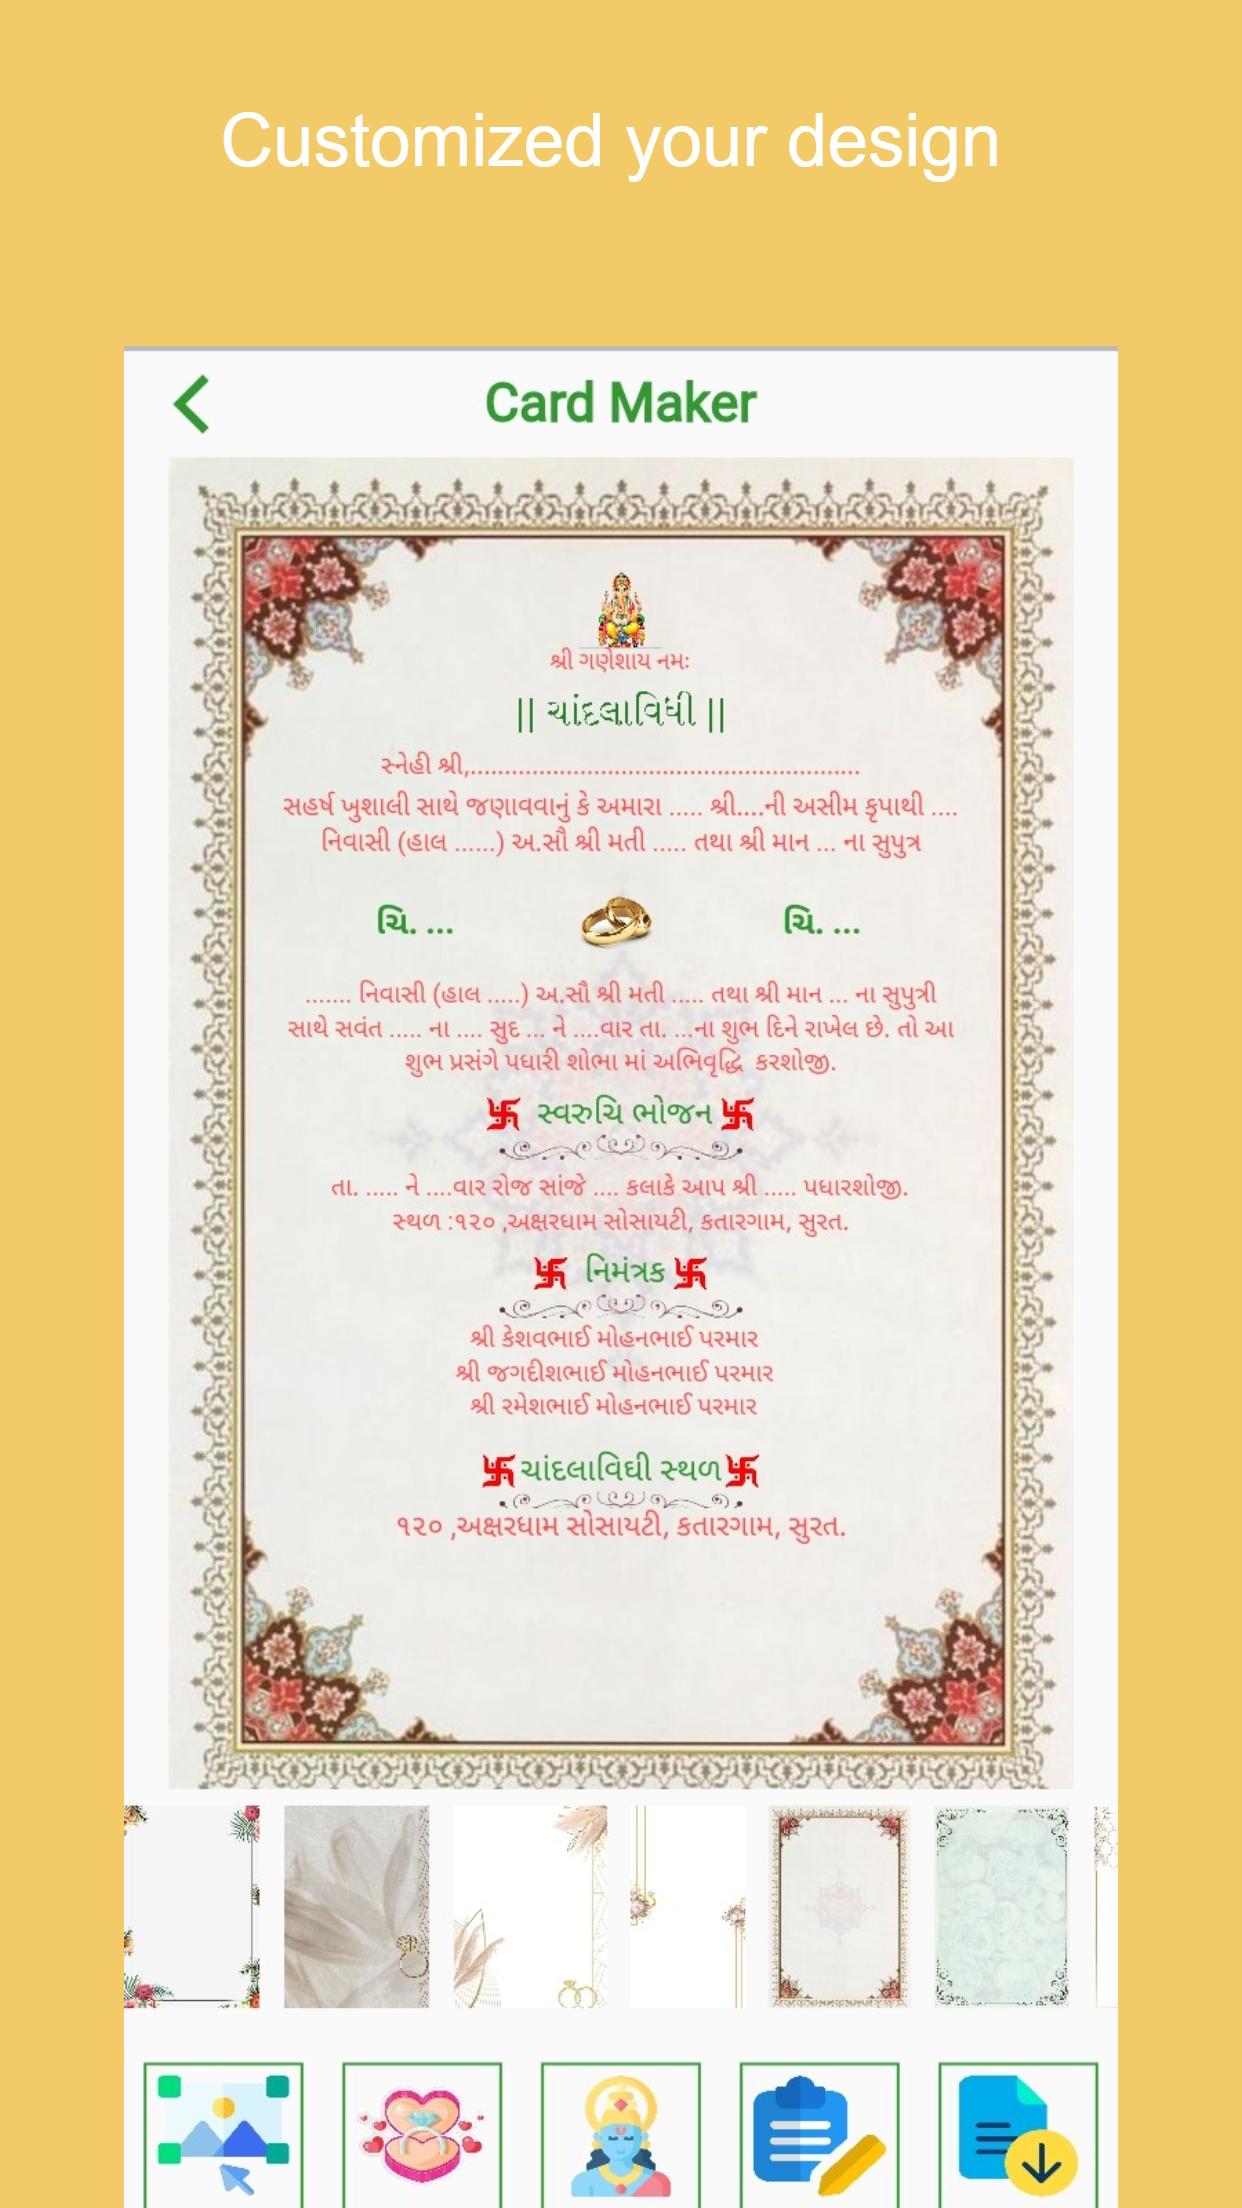 Customized your design
Card Maker
શ્રી ગણેશાય નમઃ
|| ચાંદલાવિધી ||
સ્નેહી શ્રી,.........................................................
સહર્ષ ખુશાલી સાથે જણાવવાનું કે અમારા ..... શ્રી....ની અસીમ કૃપાથી ....
નિવાસી (હાલ ......) અ.સૌ શ્રી મતી ..... તથા શ્રી માન ... ના સુપુત્ર
ચિ. ... ચિ. ...
....... નિવાસી (હાલ .....) અ.સૌ શ્રી મતી ..... તથા શ્રી માન ... ના સુપુત્રી
સાથે સવંત ..... ના .... સુદ ... ને ....વાર તા. ...ના શુભ દિને રાખેલ છે. તો આ
શુભ પ્રસંગે પધારી શોભા માં અભિવૃદ્ધિ કરશોજી.
卐 સ્વરુચિ ભોજન 卐
તા. ..... ને ....વાર રોજ સાંજે .... કલાકે આપ શ્રી ..... પધારશોજી.
સ્થળ :૧૨૦ ,અક્ષરધામ સોસાયટી, કતારગામ, સુરત.
卐 નિમંત્રક 卐
શ્રી કેશવભાઈ મોહનભાઈ પરમાર
શ્રી જગદીશભાઈ મોહનભાઈ પરમાર
શ્રી રમેશભાઈ મોહનભાઈ પરમાર
卐 ચાંદલાવિઘી સ્થળ 卐
૧૨૦ ,અક્ષરધામ સોસાયટી, કતારગામ, સુરત.